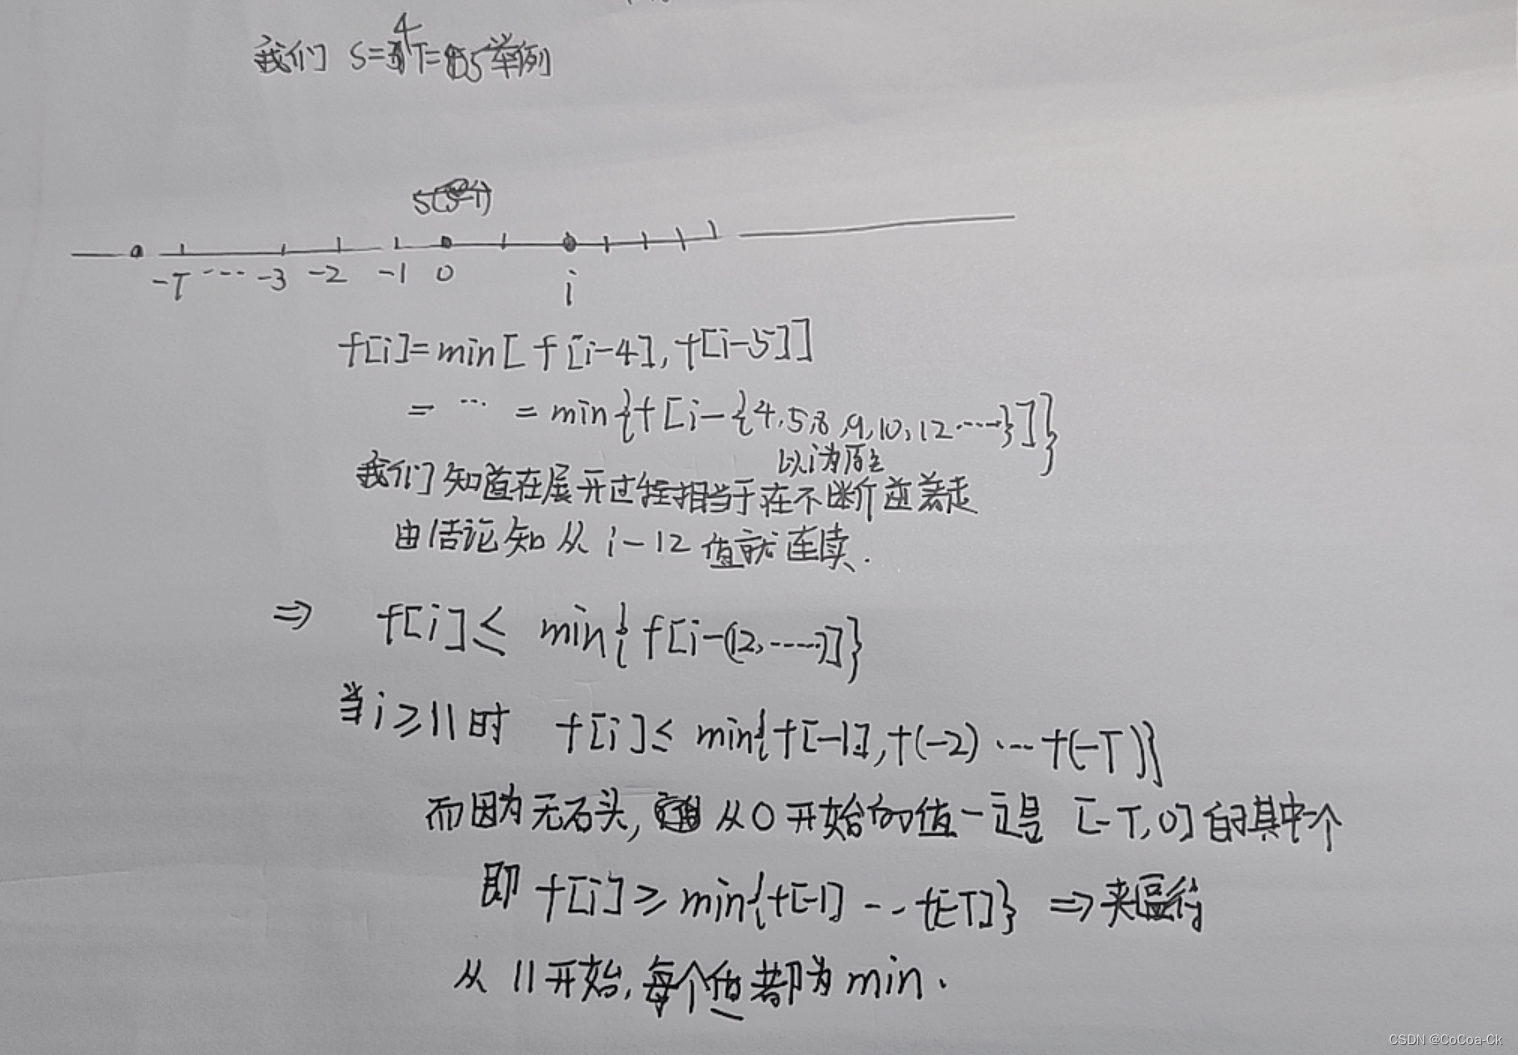 我们 S=4 T=5举例
S(S-1)
-T ---- -3 -2 -1 0 i
f[i]=min[f[i-4],f[i-5]]
= ... = min{f[i-{4,5,8,9,10,12……}]}
以i为原点
我们知道在展开过程相当于在不断逆着走
由结论知从 i-12 值就连续.
⇒ f[i]≤ min{f[i-(12,……)]}
当i≥11时 f[i]≤ min{f[-1],f(-2)…f(-T)}
而因为无石头, 从0开始的值一定是 [-T,0]的其中个
即 f[i]≥min{f[-1]--f[-T]} ⇒夹逼得
从11开始,每个值都为min.
CSDN @CoCoa-Ck